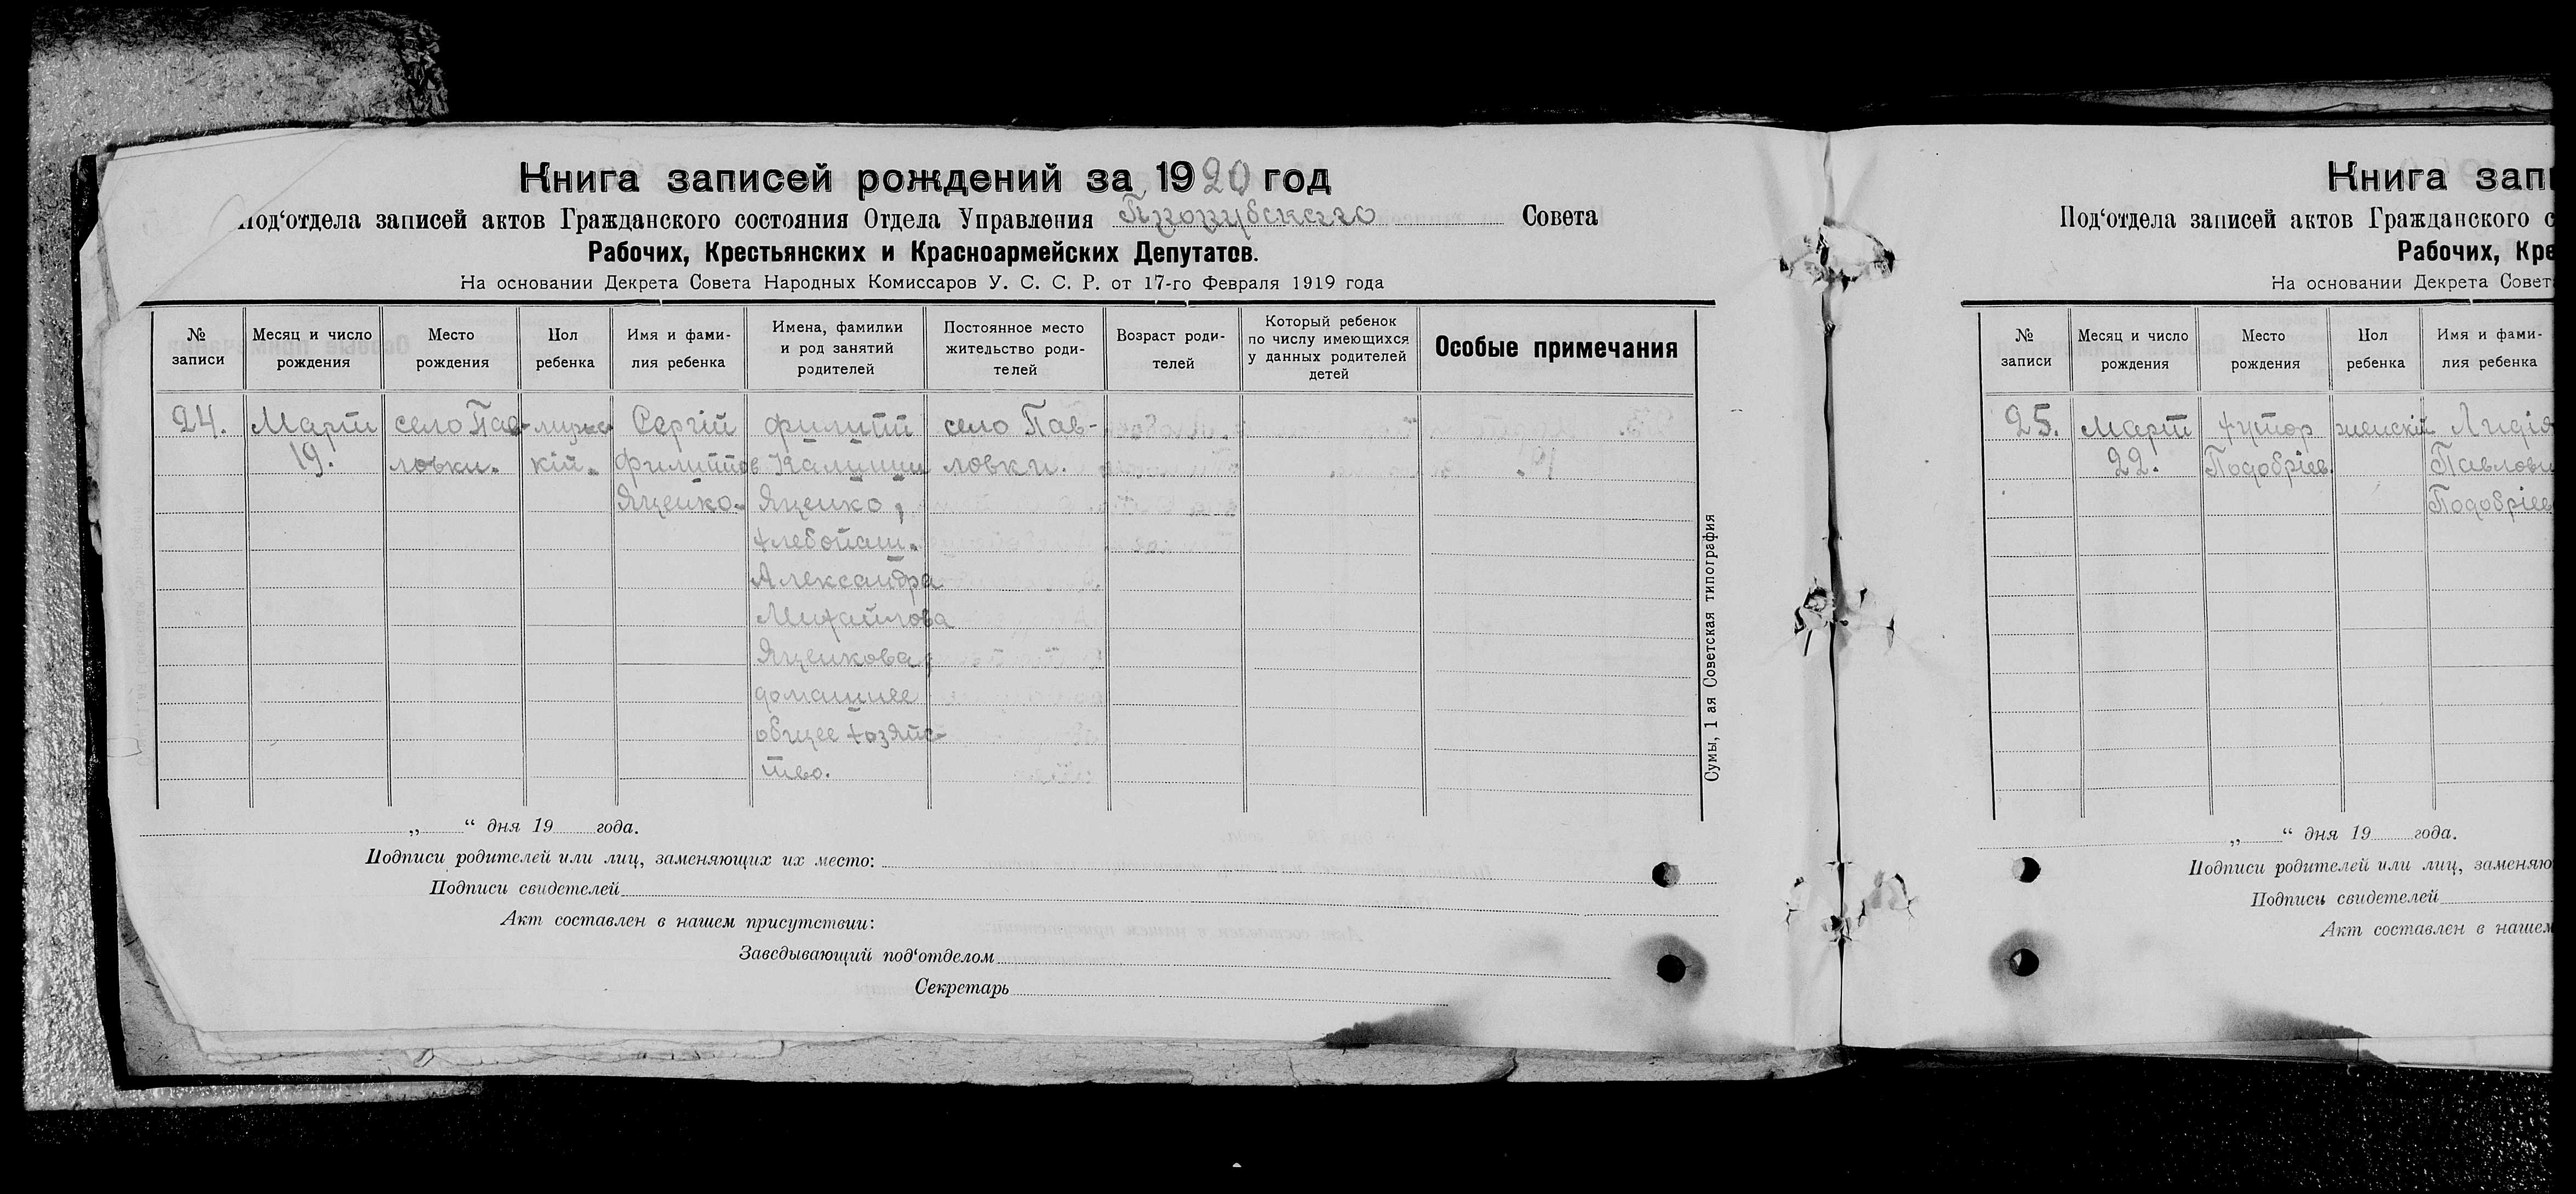 Книга записей рождений за 1920 год
Под‘отдела записей актов Гражданского состояния Отдела Управления Совета
Рабочих, Крестьянских и Красноармейских Депутатов.
На основании Декрета Совета Народных Комиссаров У. С. С. Р. от 17-го Февраля 1919 года
№
записи
Месяц и число
рождения
Место
рождения
Пол
ребенка
Имя и фами-
лия ребенка
Имена, фамилии
и род занятий
родителей
Постоянное место
жительство роди-
телей
Возраст роди-
телей
Который ребенок
по числу имеющихся
у данных родителей
детей
Особые примечания
24.
Март
19.
село Пав-
ловки.
мужс
кій.
Сергій
Филиппов
Яценко.
Филипп
Яценко,
хлебопаш.
Александра
Михайлова
Яценкова,
домашнее
общее хозяйс-
тво.
село Пав-
ловки.
Сумы, 1 ая Советская типография
„ “ дня 19 года.
Подписи родителей или лиц, заменяющих их место:
Подписи свидетелей
Акт составлен в нашем присутствии:
Заведывающий под‘отделом
Секретарь
Книга запи
Под‘отдела записей актов Гражданского с
Рабочих, Кре
На основании Декрета Совет
№
записи
Месяц и число
рождения
Место
рождения
Пол
ребенка
Имя и фами-
лия ребенка
25.
Март
22.
хутор
Подобріев.
женскій
Лидія
Павлов
Подобріев
„ “ дня 19 года.
Подписи родителей или лиц, заменяю
Подписи свидетелей
Акт составлен в нашем